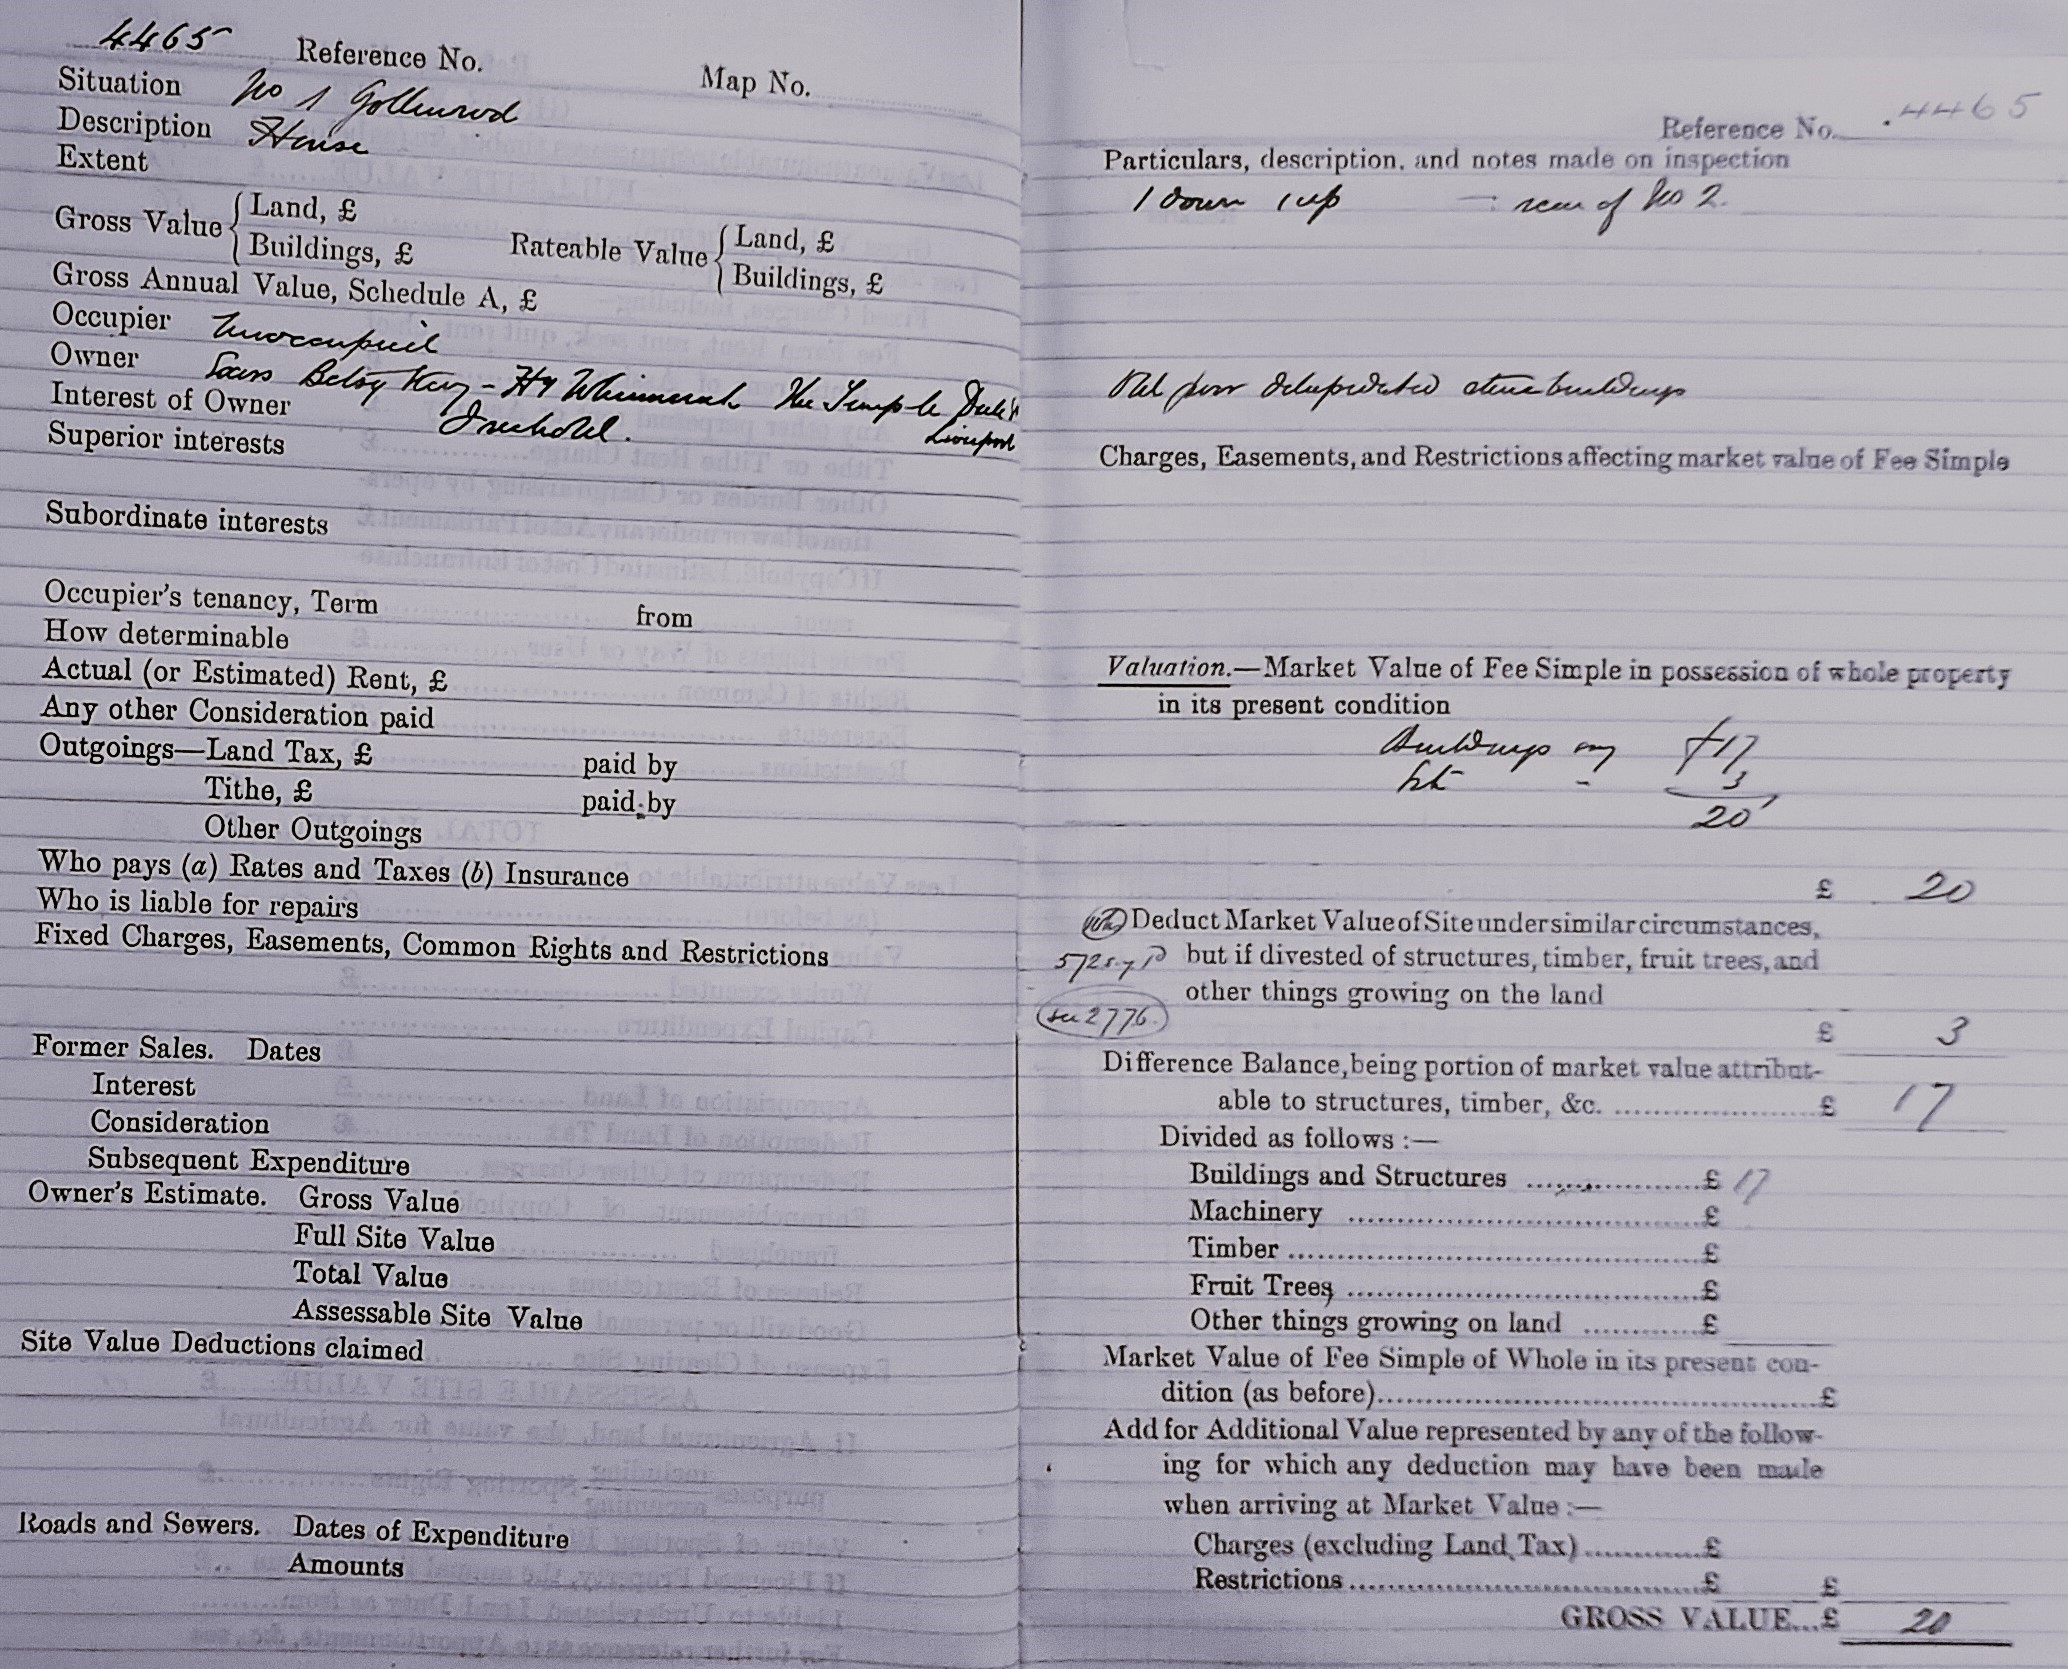 4465 Reference No.
Map No.
Situation No 1 Gollinrod
Description House
Extent
Gross Value { Land, £
Buildings, £
Rateable Value { Land, £
Buildings, £
Gross Annual Value, Schedule A, £
Occupier Unoccupied
Owner Betsy Kay - Hy The Temple Dale St
Liverpool
Interest of Owner Freehold.
Superior interests
Subordinate interests
Occupier's tenancy, Term from
How determinable
Actual (or Estimated) Rent, £
Any other Consideration paid
Outgoings—Land Tax, £ paid by
Tithe, £ paid by
Other Outgoings
Who pays (a) Rates and Taxes (b) Insurance
Who is liable for repairs
Fixed Charges, Easements, Common Rights and Restrictions
Former Sales. Dates
Interest
Consideration
Subsequent Expenditure
Owner's Estimate. Gross Value
Full Site Value
Total Value
Assessable Site Value
Site Value Deductions claimed
Roads and Sewers. Dates of Expenditure
Amounts
Reference No. 4465
Particulars, description, and notes made on inspection
1 down 1 up - rear of No 2.
Old poor delapidated stone buildings
Charges, Easements, and Restrictions affecting market value of Fee Simple
Valuation.—Market Value of Fee Simple in possession of whole property
in its present condition
Buildings say £17
Site - 3
20
£ 20
Deduct Market Value of Site under similar circumstances,
572 s. yd but if divested of structures, timber, fruit trees, and
other things growing on the land
see 2776.
£ 3
Difference Balance, being portion of market value attribut-
able to structures, timber, &c. £ 17
Divided as follows :—
Buildings and Structures £ 17
Machinery £
Timber £
Fruit Trees £
Other things growing on land £
Market Value of Fee Simple of Whole in its present con-
dition (as before) £
Add for Additional Value represented by any of the follow-
ing for which any deduction may have been made
when arriving at Market Value :—
Charges (excluding Land Tax) £
Restrictions £ £
GROSS VALUE...£ 20